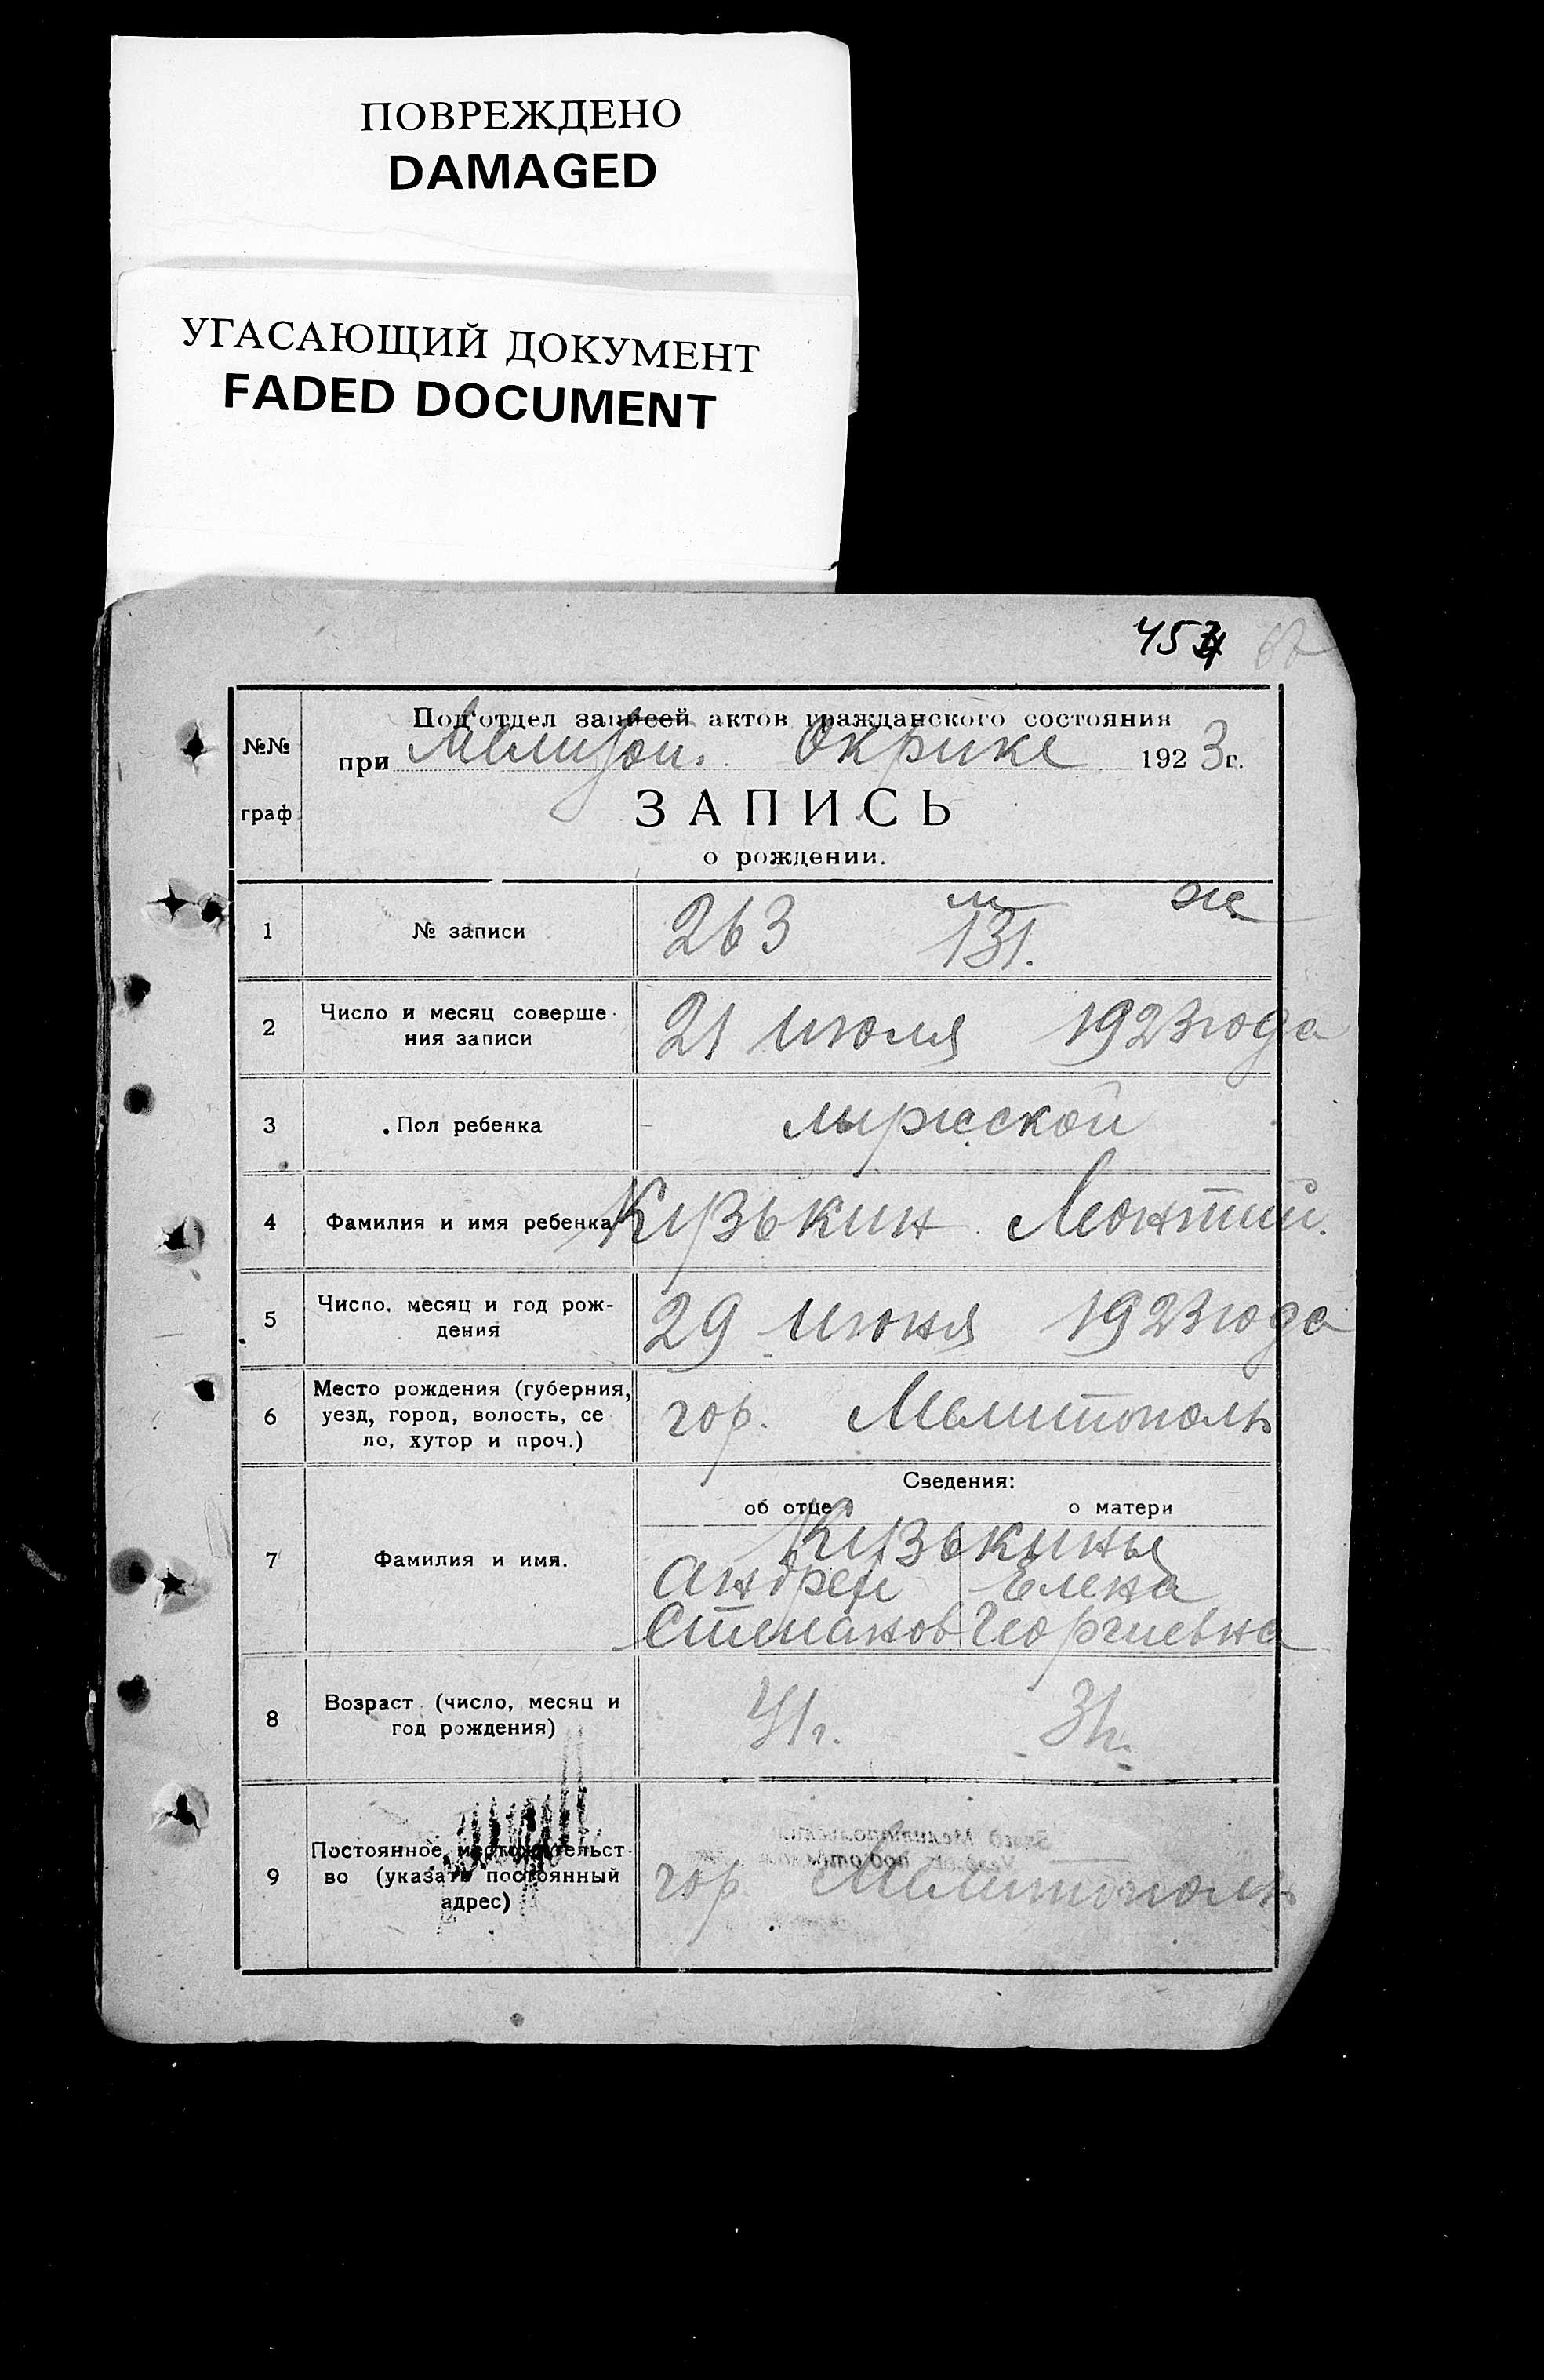 ПОВРЕЖДЕНО
DAMAGED
УГАСАЮЩИЙ ДОКУМЕНТ
FADED DOCUMENT
№№ граф
Под'отдел записей актов гражданского состояния
при Окрике 1923 г.
ЗАПИСЬ
о рождении.
1 № записи 263 м 131. ж
2 Число и месяц соверше-
ния записи 21 июля 1923 года
3 Пол ребенка мужской
4 Фамилия и имя ребенка Кузькин Леонтий.
5 Число, месяц и год рож-
дения 29 июня 1923 года
6 Место рождения (губерния,
уезд, город, волость, се
ло, хутор и проч.) гор. Мелитополь
Сведения:
об отце о матери
7 Фамилия и имя. Кузькины
Андрей Елена
Степанов Георгиевна
8 Возраст (число, месяц и
год рождения) 41 г. 31 г.
9 Постоянное местожительст
во (указать постоянный
адрес) гор. Мелитополь